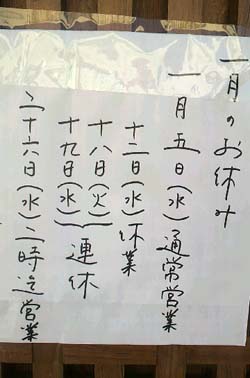 一月のお休み
一月五日(水)通常営業
十二日(水)休業
十八日(火)
十九日(水)連休
二十六日(水)二時迄営業